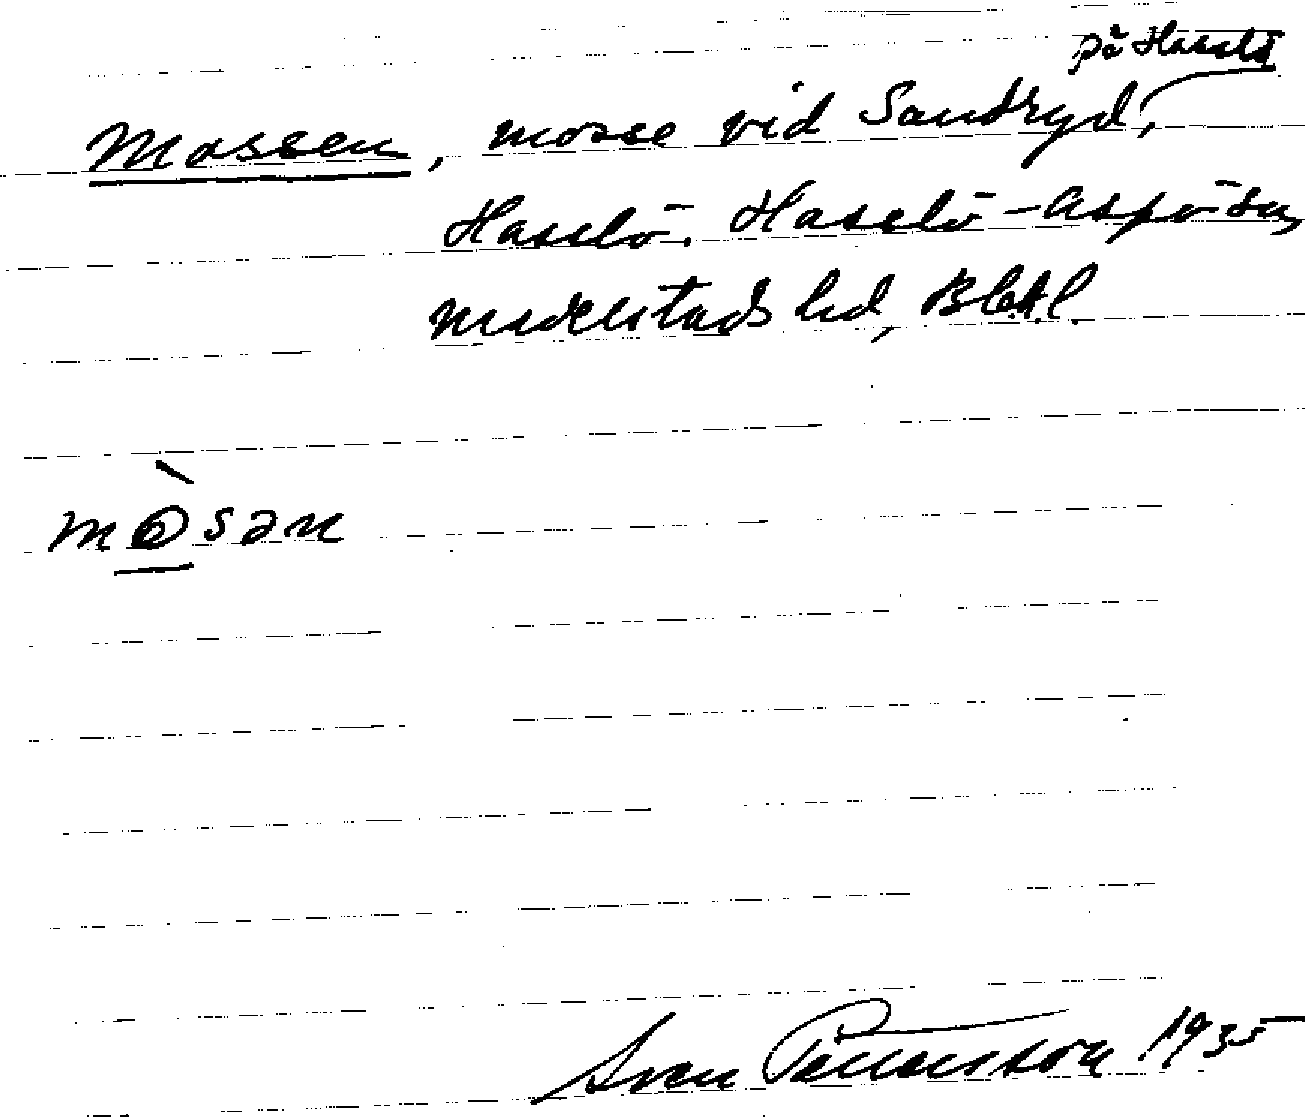 på Hasslö
Mossen, mosse vid Sandryd,
Hasslö. Hasslö-Aspö sn,
Medelstads hd, Blek l.
mòsən
Sven 1935